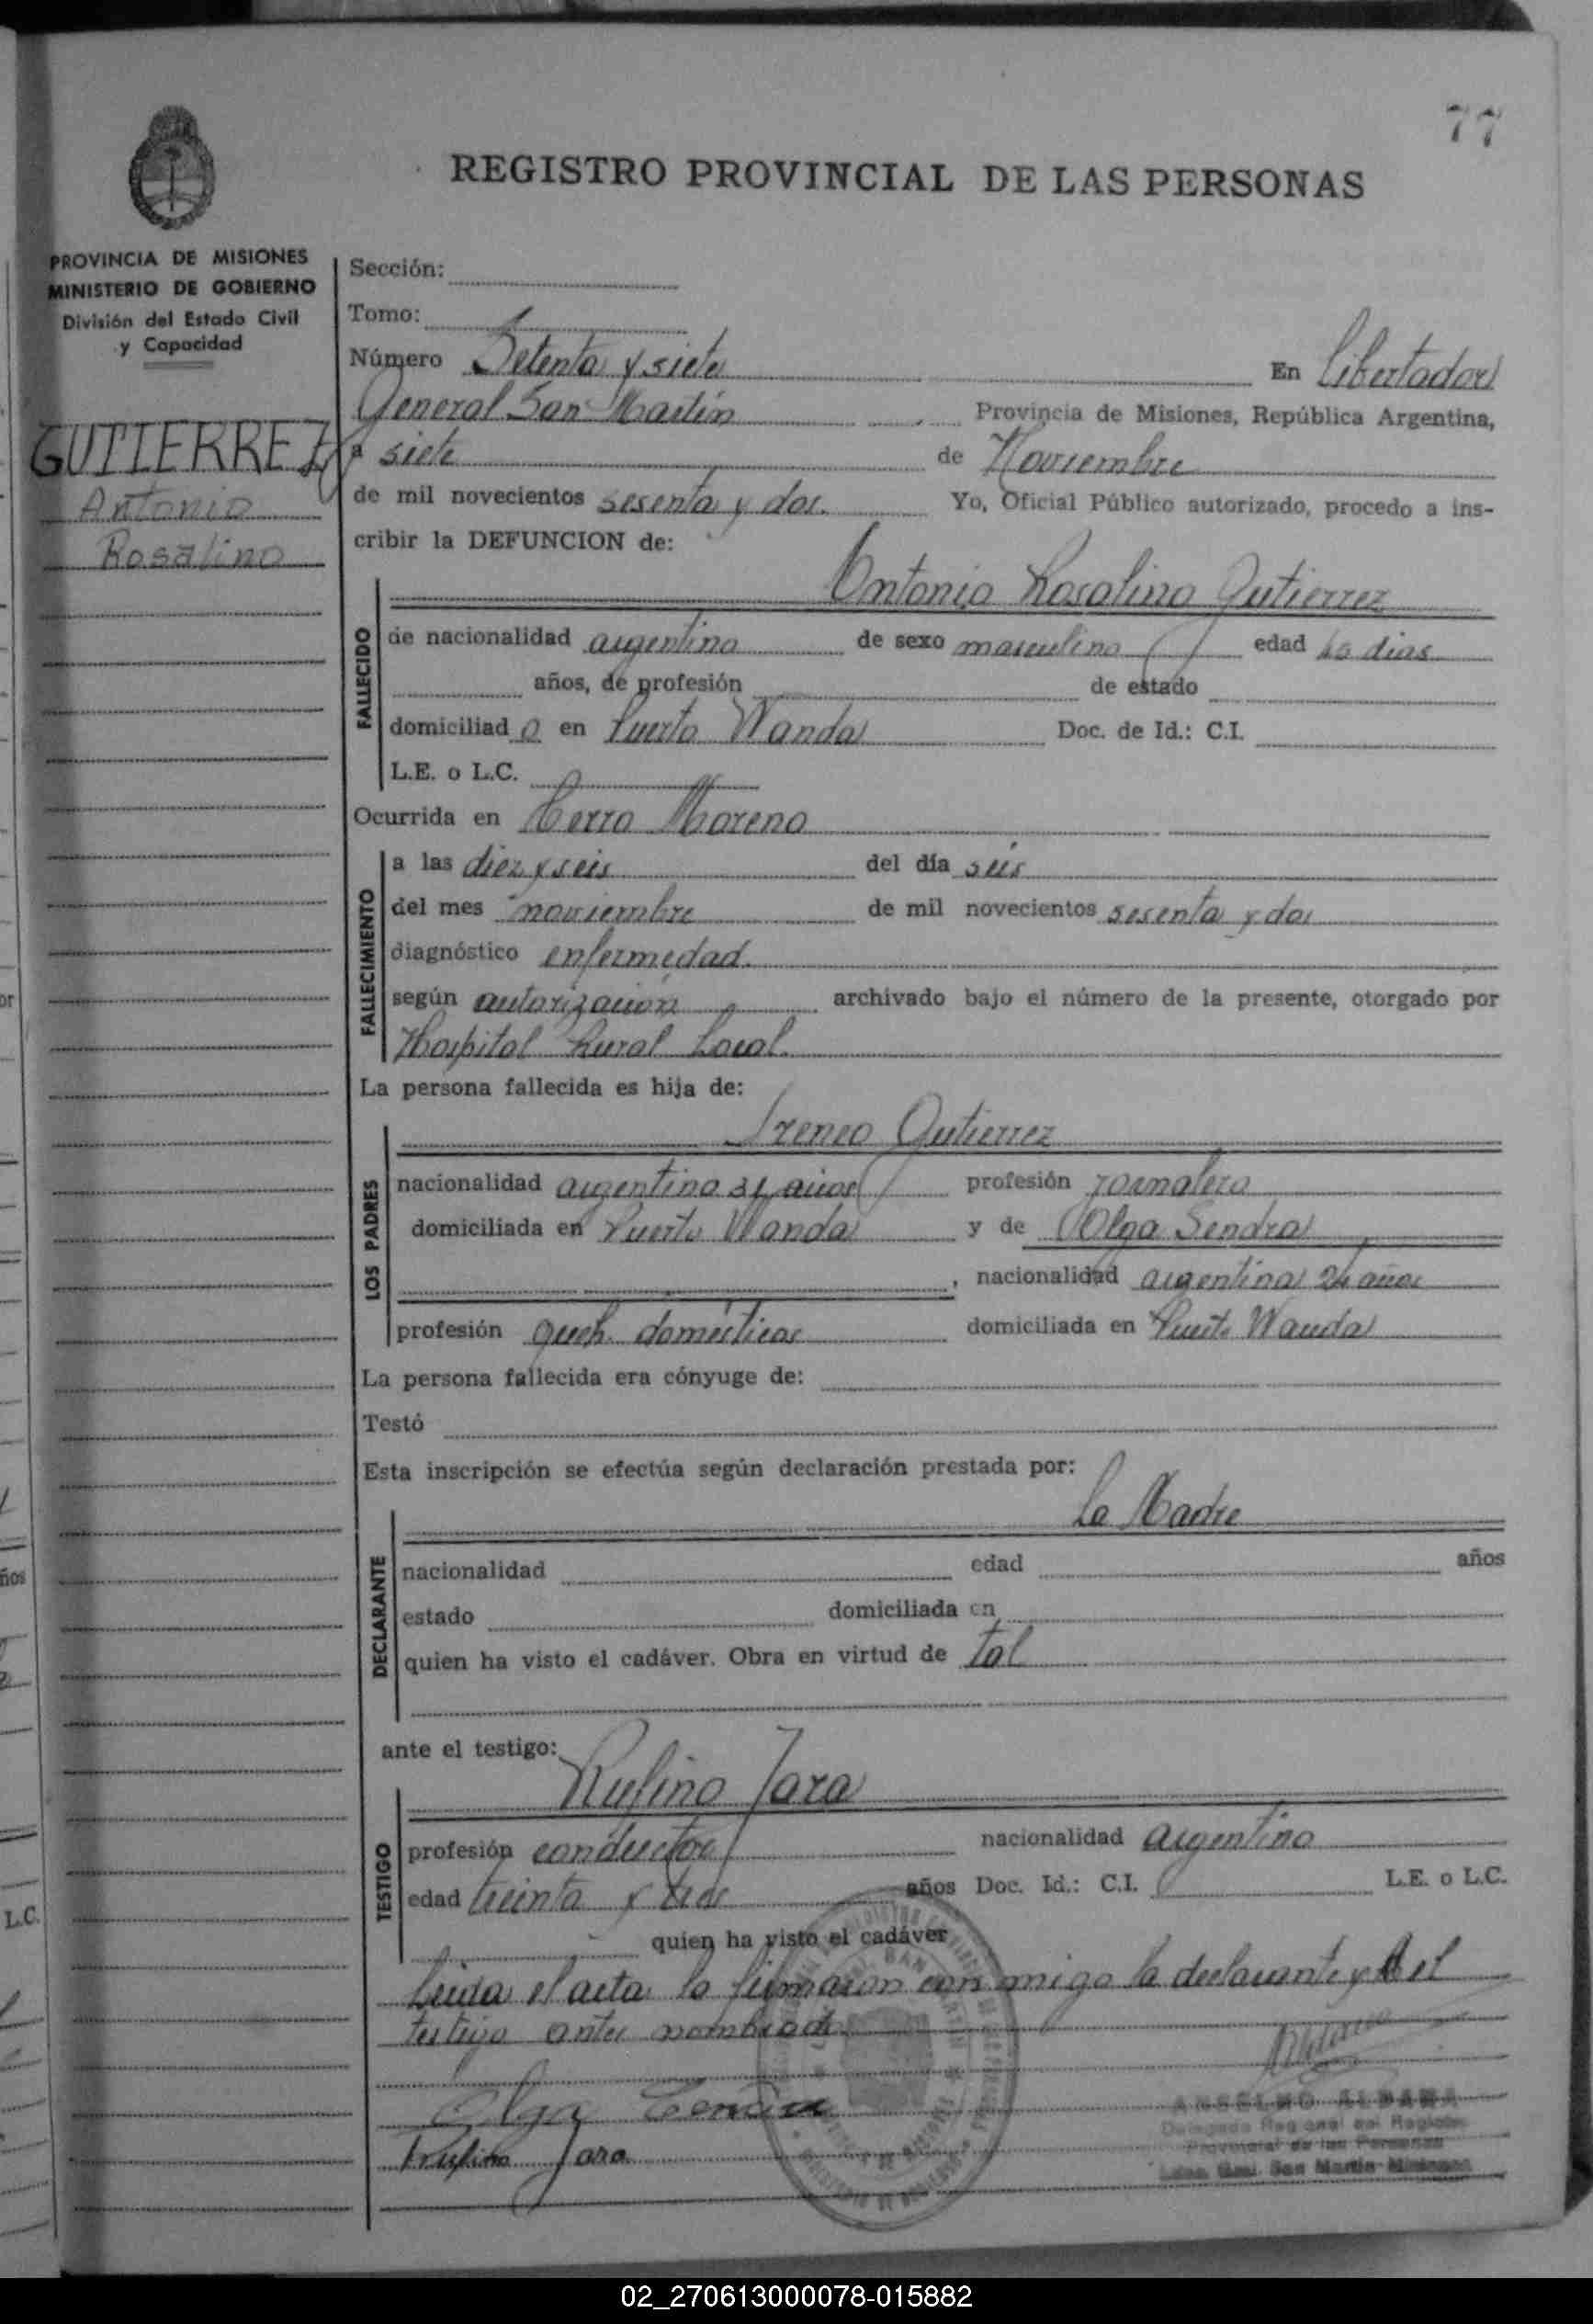 77
REGISTRO PROVINCIAL DE LAS PERSONAS
PROVINCIA DE MISIONES
MINISTERIO DE GOBIERNO
División del Estado Civil
y Capacidad
GUTIERREZ
Antonio
Rosalino
Sección:
Tomo: 1
Número Setenta y siete En Libertador
General San Martín Provincia de Misiones, República Argentina,
a siete de Noviembre
de mil novecientos sesenta y dos. Yo, Oficial Público autorizado, procedo a ins-
cribir la DEFUNCION de:
Antonio Rosalino Gutierrez
FALLECIDO
de nacionalidad argentino de sexo masculino edad dias
años, de profesión de estado
domiciliad o en Puerto Wanda Doc. de Id.: C.I.
L.E. o L.C.
Ocurrida en Cerro Moreno
FALLECIMIENTO
a las diez y seis del día seis
del mes noviembre de mil novecientos sesenta y dos
diagnóstico enfermedad.
según autorización archivado bajo el número de la presente, otorgado por
Hospital Rural Local.
La persona fallecida es hija de:
Ireneo Gutierrez
LOS PADRES
nacionalidad argentino 31 años profesión jornalero
domiciliada en Puerto Wanda y de Olga Sendra
, nacionalidad argentina 24 años
profesión queh. domésticos domiciliada en Puerto Wanda
La persona fallecida era cónyuge de:
Testó
Esta inscripción se efectúa según declaración prestada por:
La Madre
DECLARANTE
nacionalidad edad años
estado domiciliada en
quien ha visto el cadáver. Obra en virtud de tal
ante el testigo:
Rufino Jara
TESTIGO
profesión conductor nacionalidad argentino
edad treinta y tres años Doc. Id.: C.I. L.E. o L.C.
quien ha visto el cadáver
Leida el acta la firmaron conmigo la declarante y el
testigo antes nombrado
Olga
Rufino Jara
ANSELMO ALDANA
Delegado Regional del Registro
Provincial de las Personas
Ldor. Gral. San Martín Misiones
or
ños
L.C.
02_270613000078-015882